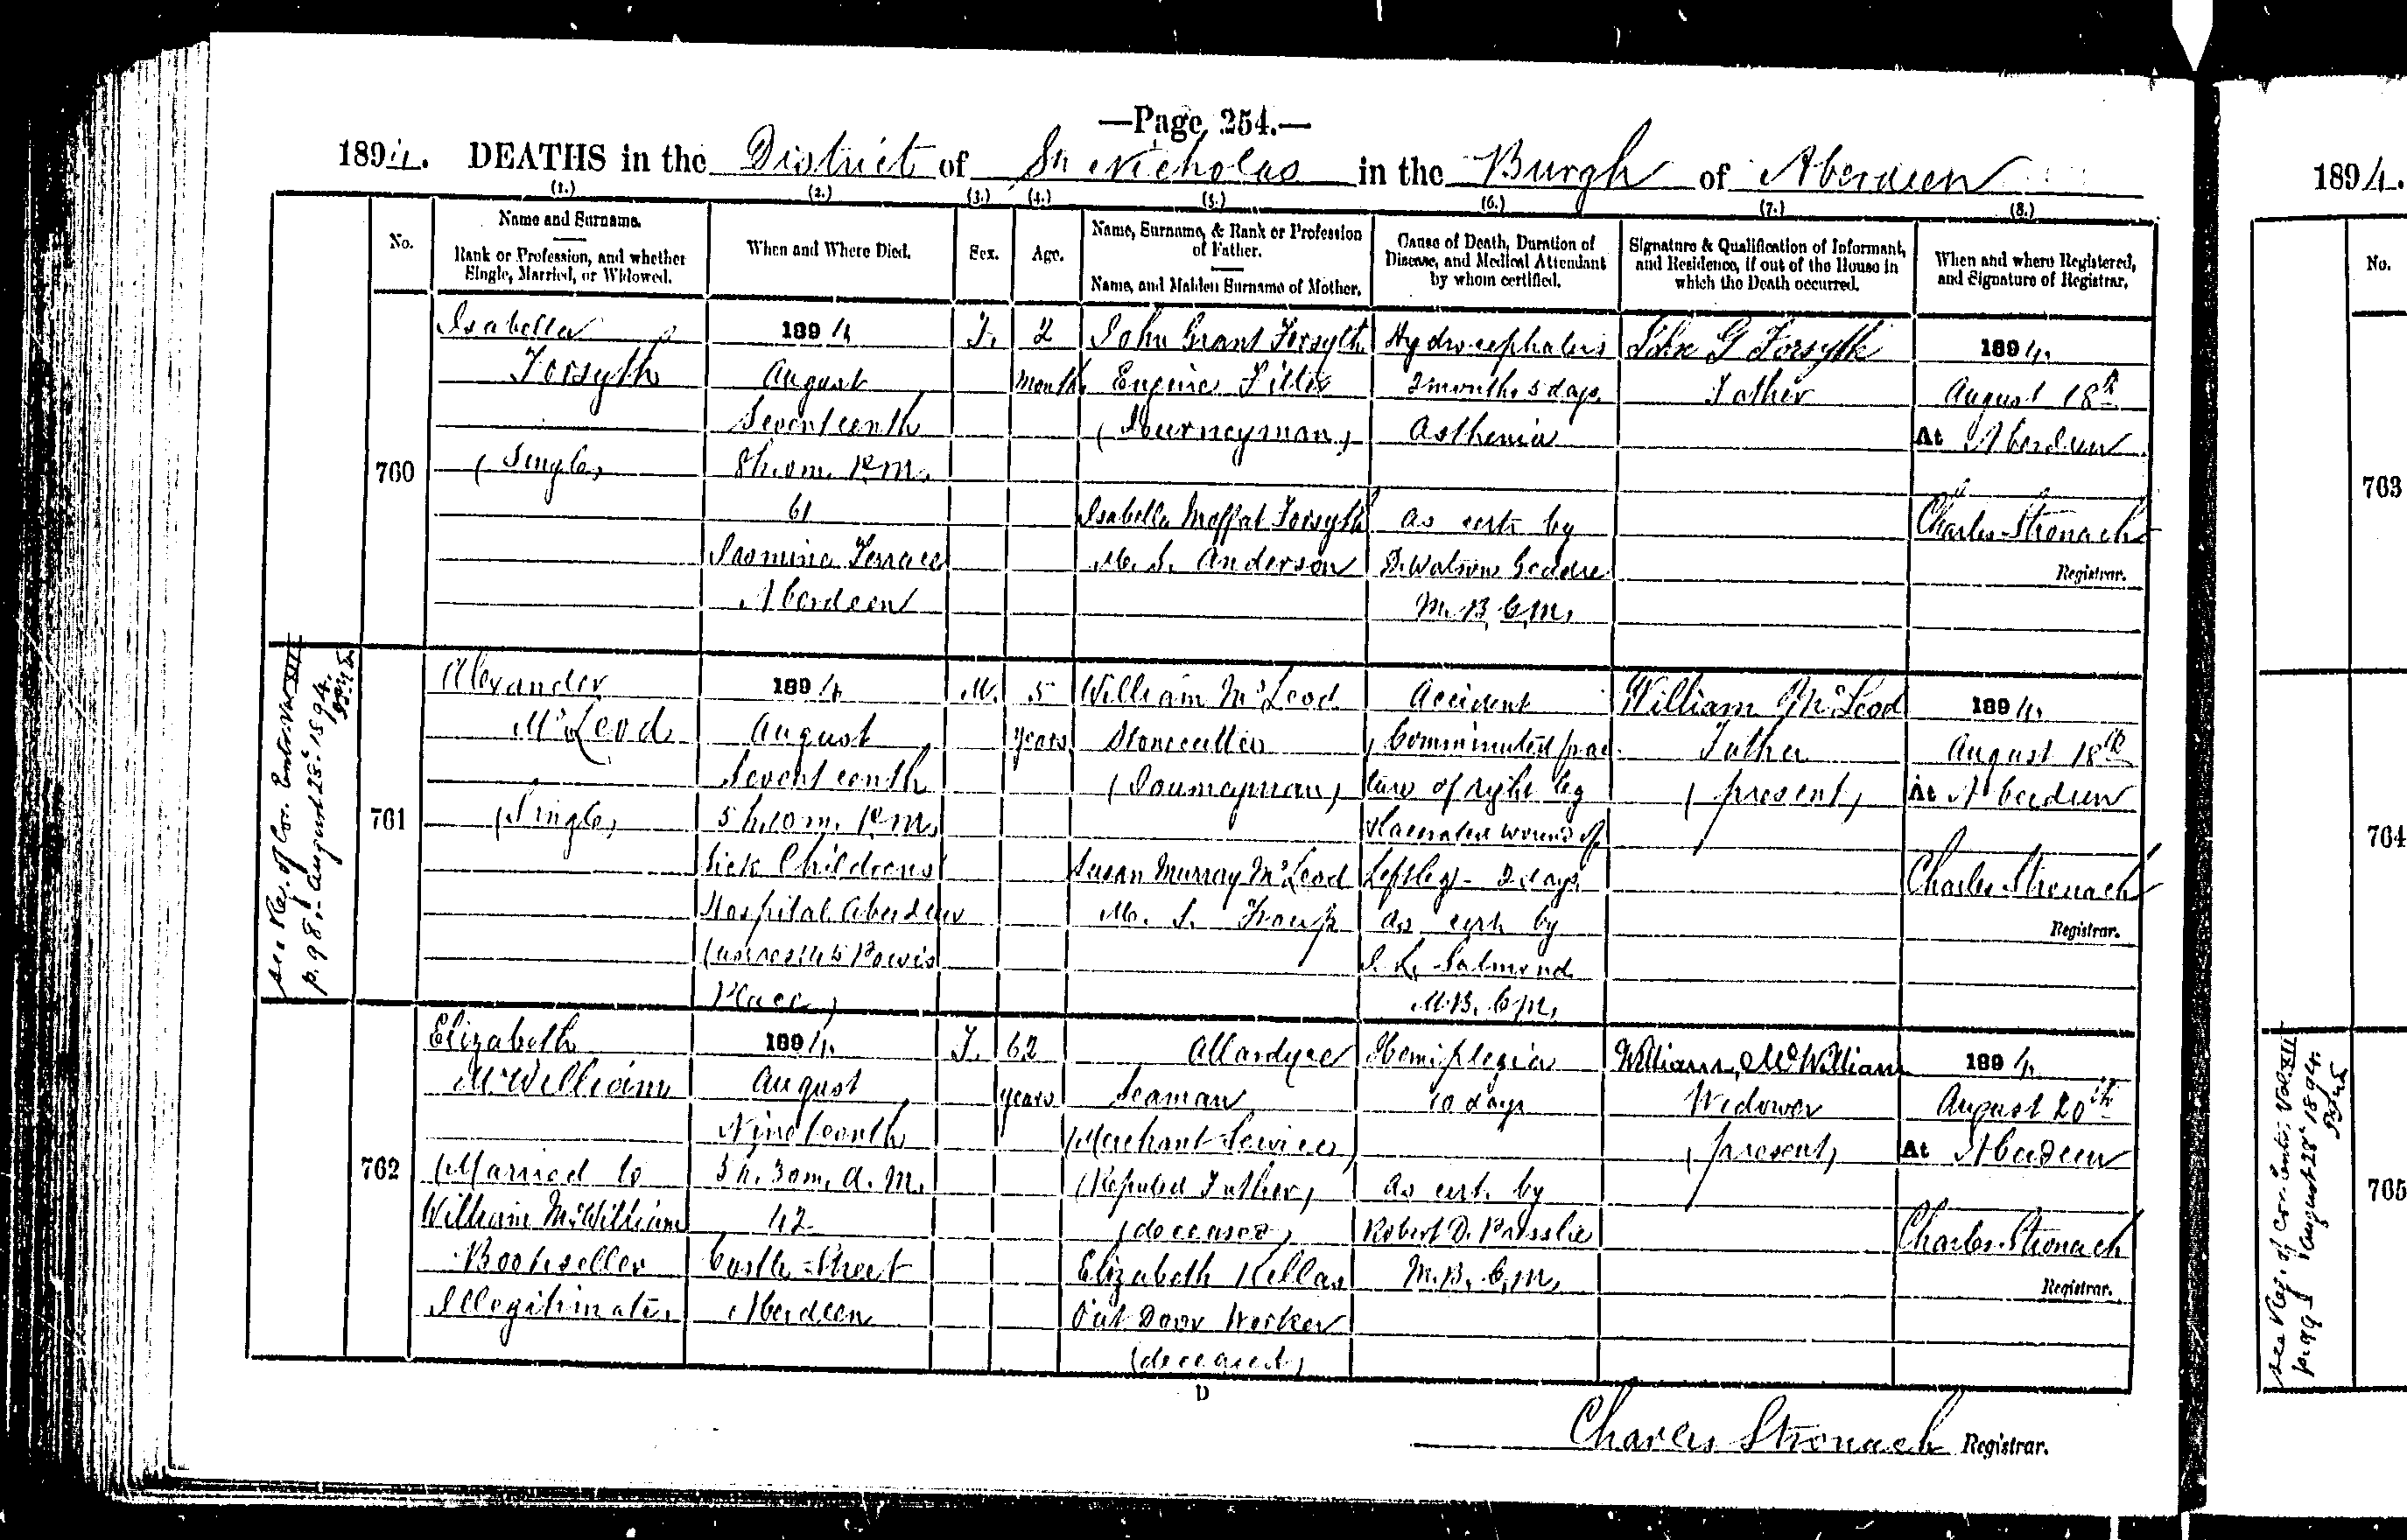 —Page 254.—
1894. DEATHS in the District of St Nicholas in the Burgh of Aberdeen
(1.) (2.) (3.) (4.) (5.) (6.) (7.) (8.)
No.
Name and Surname.
Rank or Profession, and whether
Single, Married, or Widowed.
When and Where Died.
Sex.
Age.
Name, Surname, & Rank or Profession
of Father.
Name, and Maiden Surname of Mother.
Cause of Death, Duration of
Disease, and Medical Attendant
by whom certified.
Signature & Qualification of Informant,
and Residence, if out of the House in
which the Death occurred.
When and where Registered,
and Signature of Registrar.
760
Isabella
Forsyth
(Single)
1894
August
Seventeenth
8h. 0m. P.M.
61
Jasmine Terrace
Aberdeen
F.
2
months
John Grant Forsyth
Engine Fitter
(Journeyman)
Isabella Moffat Forsyth
M. S. Anderson
Hydrocephalus
2 months 5 days
Asthenia
as cert by
D. Watson Geddie
M.B. C.M.
John G Forsyth
Father
1894.
August 18th
At Aberdeen
Charles Stronach
Registrar.
See Reg. of Cor. Entrs. Vol XII
p. 98,- August 28th 1894.
761
Alexander
McLeod
(Single)
1894
August
Seventeenth
5h. 10m. P.M.
Sick Childrens'
Hospital Aberdeen
Powis
Place)
M.
5
years
William McLeod
Stonecutter
(Journeyman)
Susan Murray McLeod
M. S. Troup
Accident
Comminuted frac-
ture of right leg
& lacerated wound of
Left leg - 2 days
as cert by
Salmond
M.B. C.M.
William McLeod
Father
(present)
1894.
August 18th
At Aberdeen
Charles Stronach
Registrar.
762
Elizabeth
McWilliam
(Married to
William McWilliam
Bookseller
Illegitimate)
1894.
August
Nineteenth
5h. 30m. A.M.
42
Castle Street
Aberdeen
F.
62
years
Allardyce
Seaman
(Merchant Service)
(Reputed Father)
(deceased)
Elizabeth Kellas
Out Door Worker
(deceased)
Hemiplegia
10 days
as cert. by
Robert D.
M.B. C.M.
William McWilliam
Widower
(present)
1894.
August 20th
At Aberdeen
Charles Stronach
Registrar.
D
Charles Stronach Registrar.
1894.
No.
763
764
See Reg. of Cor. Entrs. Vol. XII
p. 99 August 28th 1894.
765